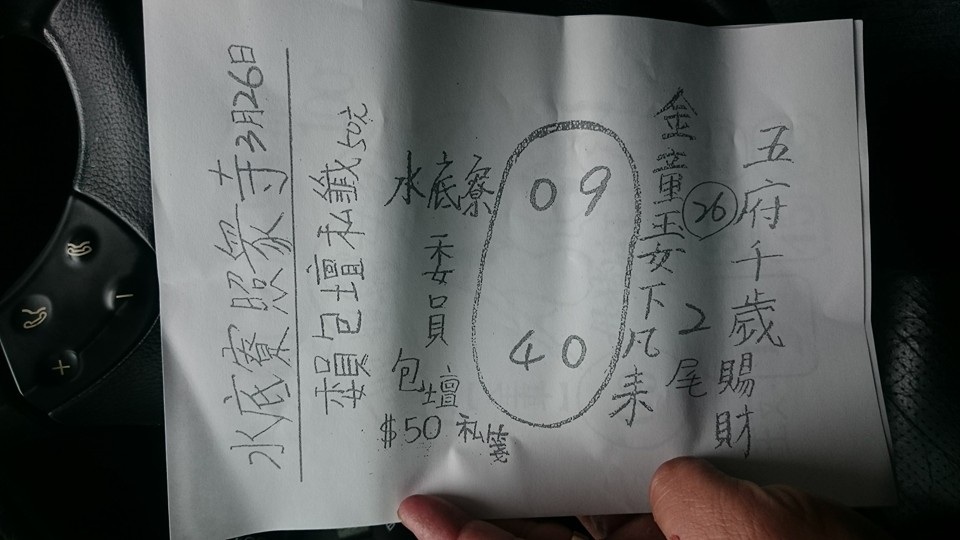 五府千歲賜財
26 2尾
金童玉女下凡來
09
40
水底寮
委員
包壇
$50 私箋
委員包壇私籤50元
水底寮照眾寺3月26日